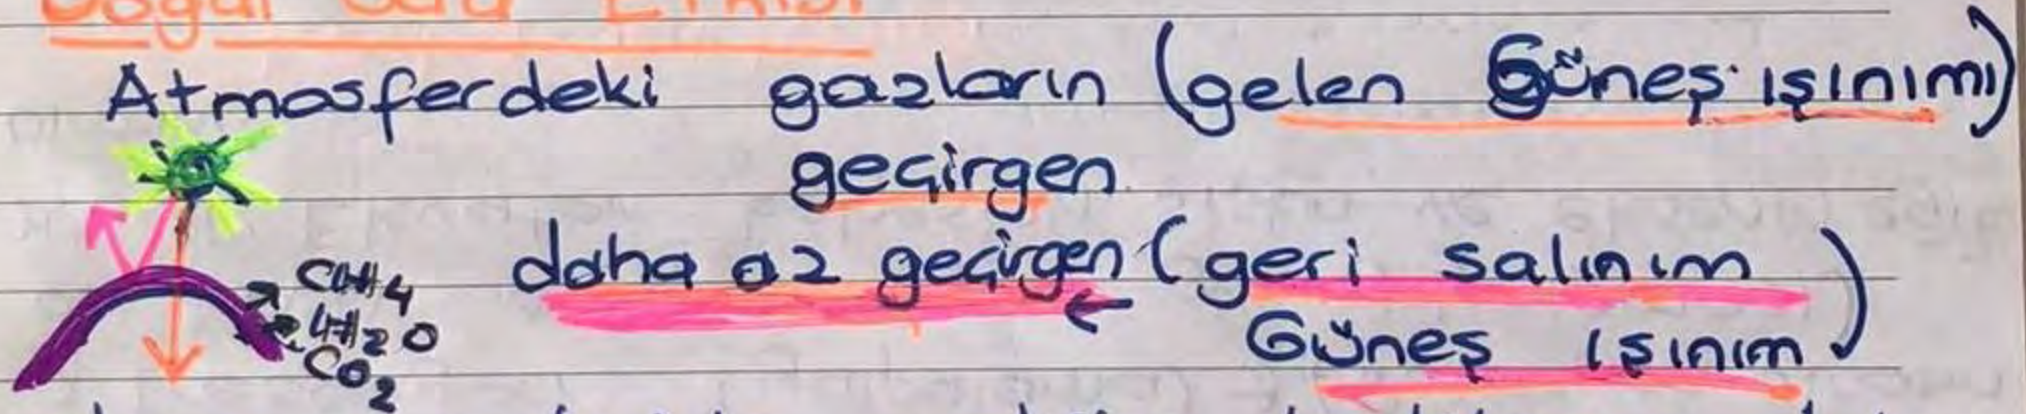 Doğal Sera Etkisi
Atmosferdeki gazların (gelen Güneş ışınımı)
geçirgen
daha az geçirgen (geri salınım
Güneş ışınım)
CH4
H2O
CO2